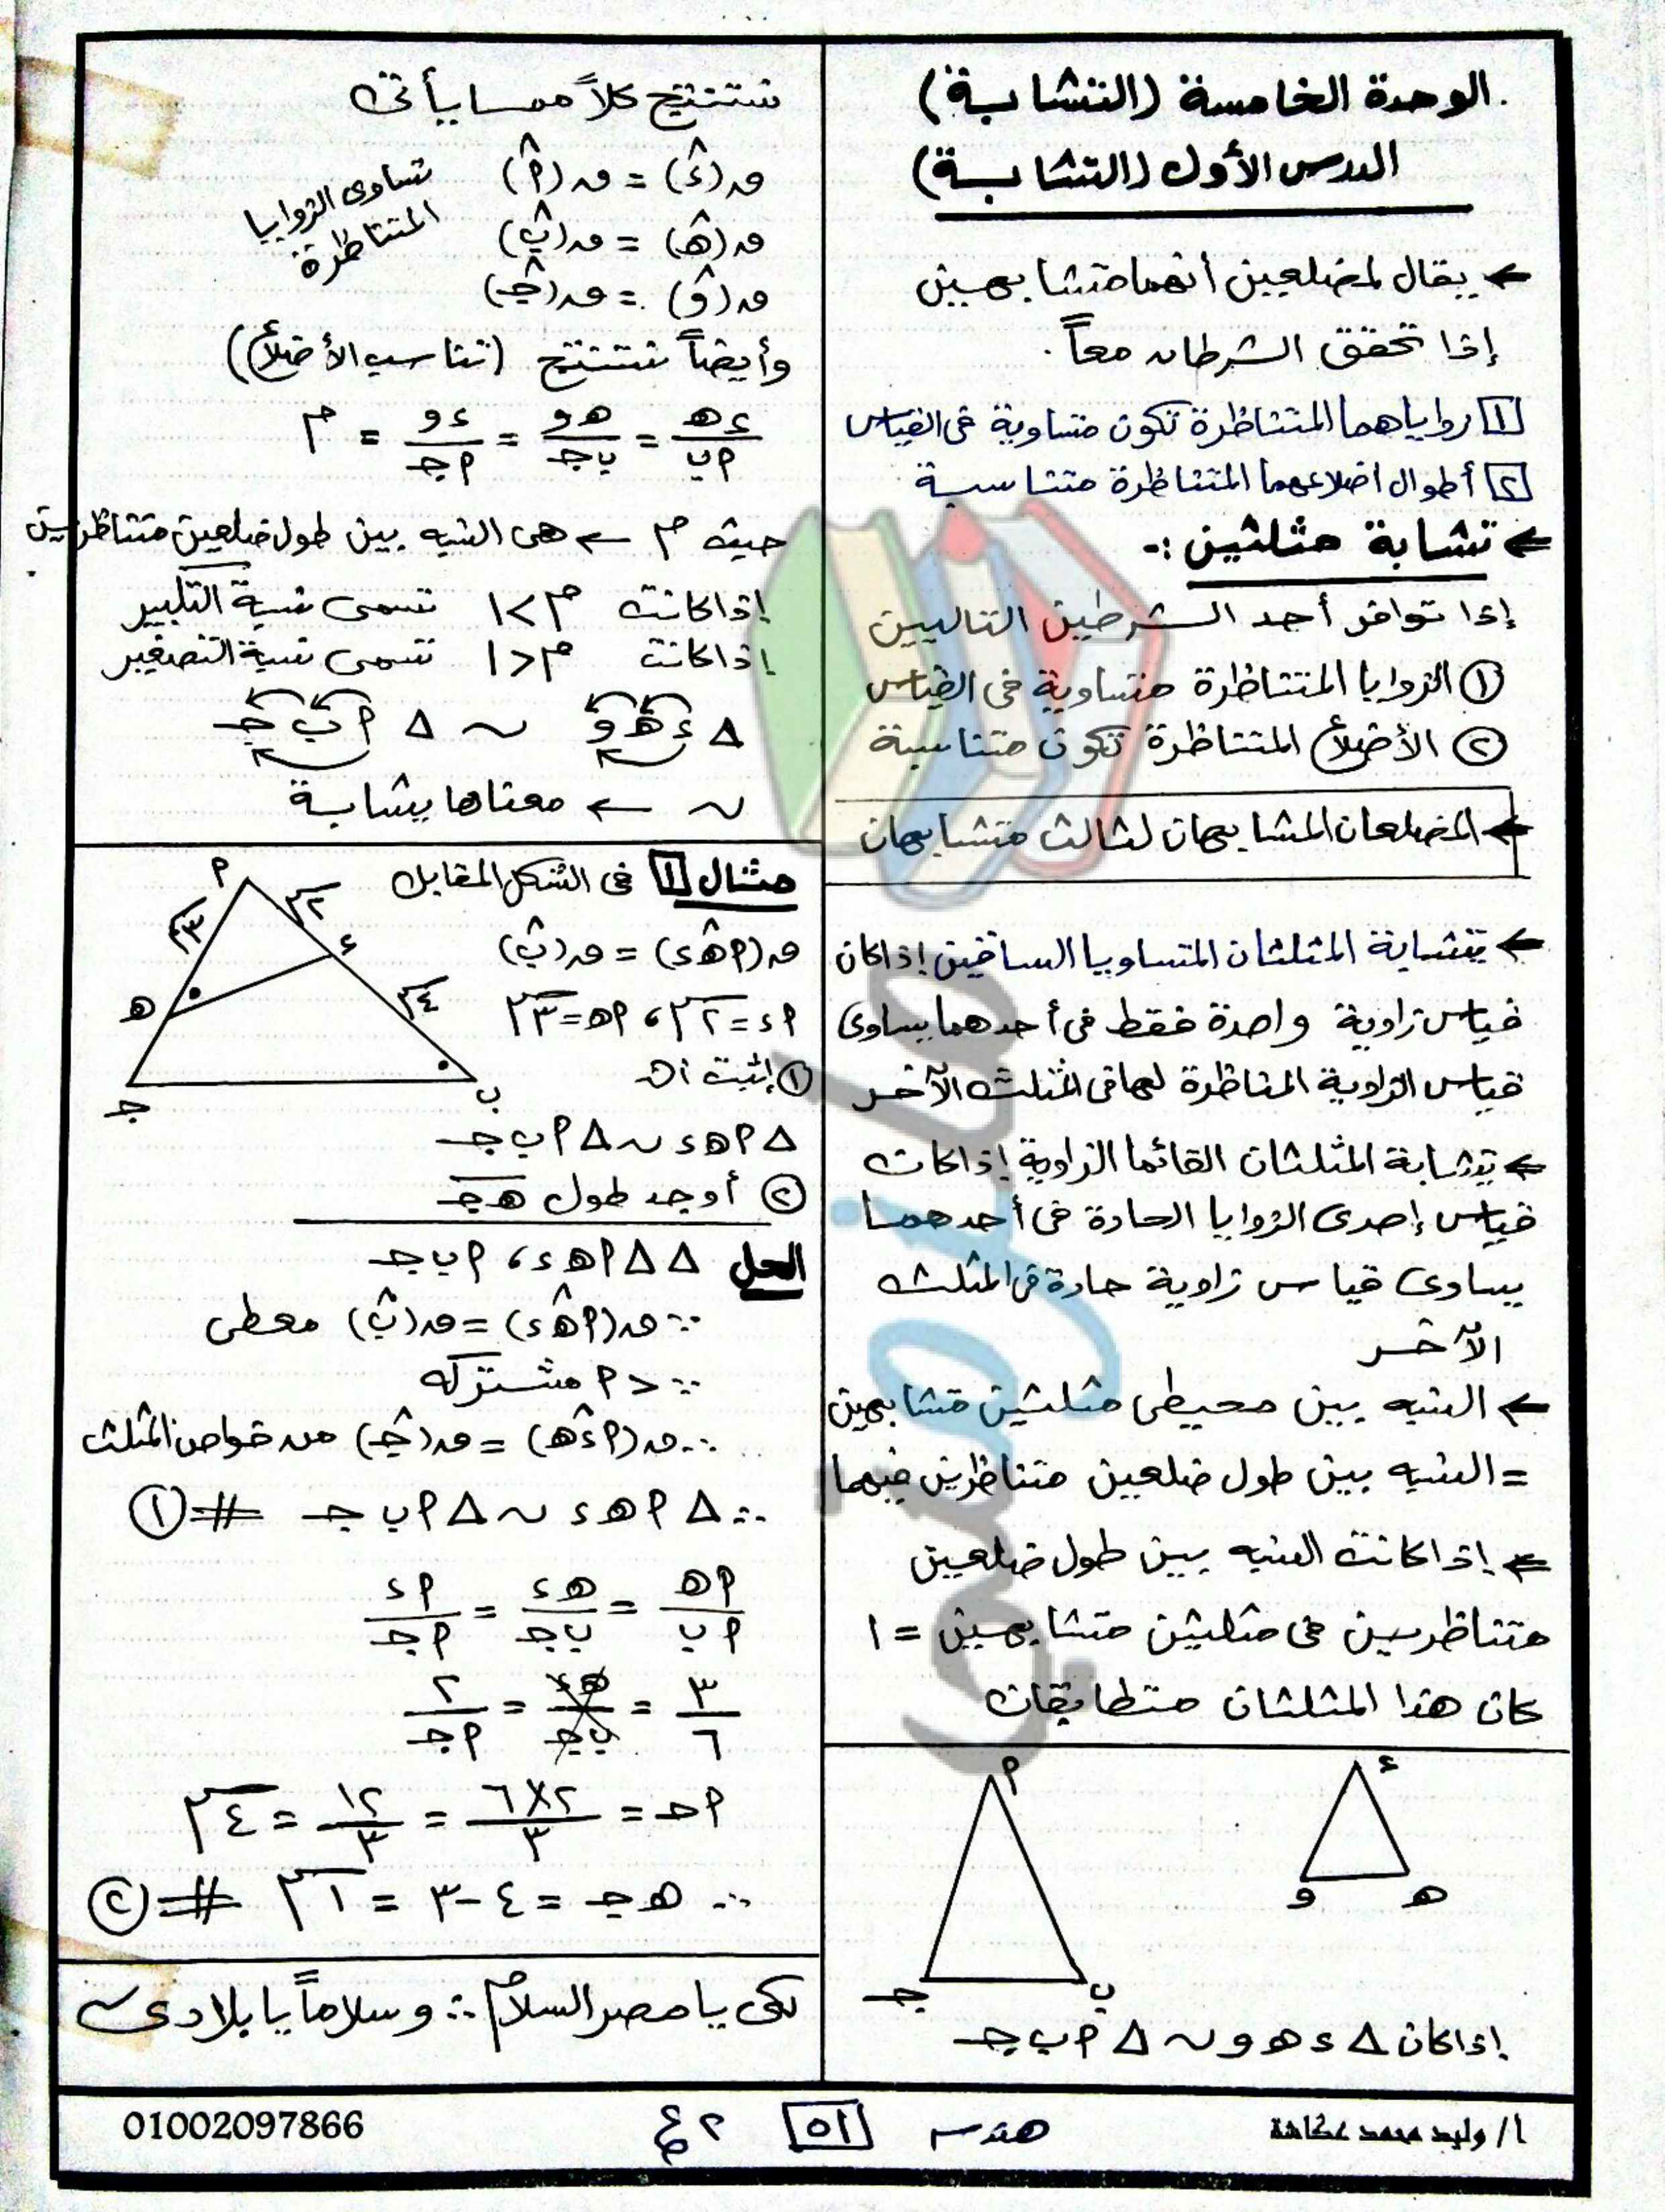 الوحدة الخامسة (التشابة)
الدرس الأول (التشابة)
← يقال لمضلعين أنهما متشابهين
إذا تحقق الشرطان معاً.
[١] زواياهما المتناظرة تكون متساوية فى القياس
[٢] أطوال اضلاعهما المتناظرة متناسبة
← تشابة مثلثين :-
إذا توافر أحد الشرطين التاليين
① الزوايا المتناظرة متساوية فى القياس
② الأضلاع المتناظرة تكون متناسبة
← المضلعان المشابهان لثالث متشابهان
← يتشابة المثلثان المتساويا الساقين إذا كان
قياس زاوية واحدة فقط فى أحدهما يساوى
قياس الزاوية المناظرة لها فى المثلث الآخر
← يتشابة المثلثان القائما الزاوية إذا كان
قياس إحدى الزوايا الحادة فى أحدهما
يساوى قياس زاوية حادة فى المثلث
الآخر
← النسبه بين محيطى مثلثين متشابهين
= النسبه بين طول ضلعين متناظرين فيهما
← إذا كانت النسبه بين طول ضلعين
متناظرين فى مثلثين متشابهين = ١
كان هذا المثلثان متطابقان
م
ب
جـ
ء
هـ
و
إذا كان △ ء هـ و ~ △ م ب جـ
نستنتج كلاً مما يأتى
ق(ءˆ) = ق(مˆ)
ق(هـˆ) = ق(بˆ)
ق(وˆ) = ق(جـˆ)
تساوى الزوايا
المتناظرة
وأيضاً نستنتج (تناسب الأضلاع)
ء هـ / م ب = هـ و / ب جـ = ء و / م جـ = م
حيث م ← هى النسبه بين طول ضلعين متناظرين
إذا كانت م > ١ تسمى نسبة التكبير
إذا كانت م < ١ تسمى نسبة التصغير
△ ء هـ و ~ △ م ب جـ
~ ← معناها يشابة
مثال [١] فى الشكل المقابل
ق(م هـˆ ء) = ق(بˆ)
م ء = ٢سم ، م هـ = ٣سم
① إثبت أن
△ م هـ ء ~ △ م ب جـ
② أوجد طول هـ جـ
م
٢سم
٣سم
ء
٤سم
هـ
ب
جـ
الحل △△ م هـ ء ، م ب جـ
∵ ق(م هـˆ ء) = ق(بˆ) معطى
∵ > م مشتركه
∴ ق(م ءˆ هـ) = ق(جـˆ) من خواص المثلث
∴ △ م هـ ء ~ △ م ب جـ # ①
م هـ / م ب = هـ ء / ب جـ = م ء / م جـ
٣ / ٦ = هـ ء / ب جـ = ٢ / م جـ
م جـ = ٢×٦ / ٣ = ١٢ / ٣ = ٤سم
∴ هـ جـ = ٤ - ٣ = ١سم # ②
لكى يا مصر السلام ∴ وسلاماً يا بلادى
أ/ وليد محمد عكاشة
هندسه
٥١
٢ ع
01002097866